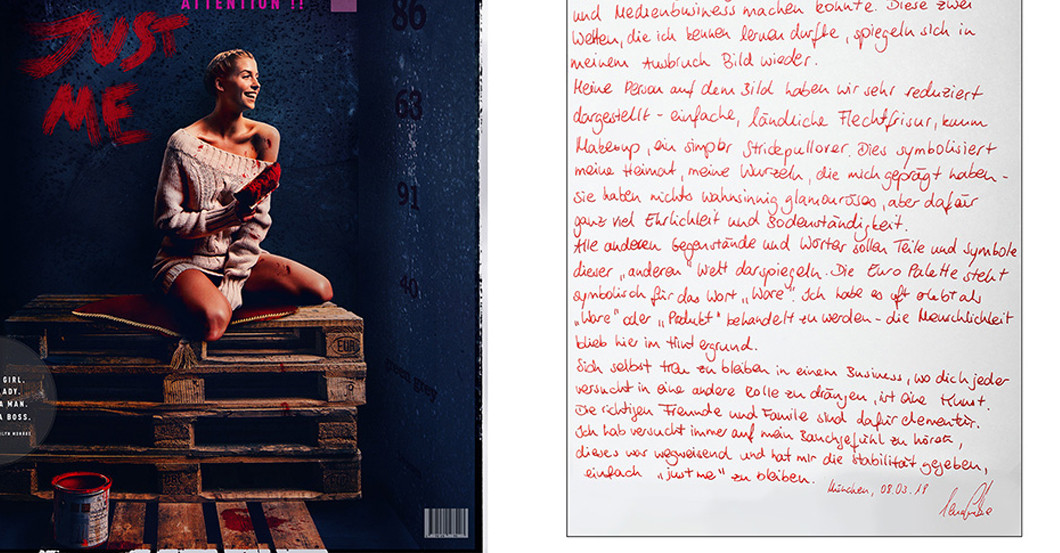 ATTENTION !!
JUST
ME
86
63
91
40
EUR
GIRL.
ADY.
A MAN.
A BOSS.
und Medienbusiness machen konnte. Diese zwei
Welten, die ich kennen lernen durfte, spiegeln sich in
meinem Ausbruch Bild wieder.
Meine Person auf dem Bild haben wir sehr reduziert
dargestellt - einfache, ländliche Flechtfrisur, kaum
Makeup, ein simpler Strickpullover. Dies symbolisiert
meine Heimat, meine Wurzeln, die mich geprägt haben -
sie haben nichts wahnsinnig glamouröses, aber dafür
ganz viel Ehrlichkeit und Bodenständigkeit.
Alle anderen Gegenstände und Wörter sollen Teile und Symbole
dieser „anderen" Welt darspiegeln. Die Euro Palette steht
symbolisch für das Wort „Ware". Ich habe es oft erlebt als
„Ware" oder „Produkt" behandelt zu werden - die Menschlichkeit
blieb hier im Hintergrund.
Sich selbst treu zu bleiben in einem Business, wo dich jeder
versucht in eine andere Rolle zu drängen, ist eine Kunst.
Die richtigen Freunde und Familie sind dafür elementar.
Ich hab versucht immer auf mein Bauchgefühl zu hören,
dieses war wegweisend und hat mir die Stabilität gegeben,
einfach „just me" zu bleiben.
München, 08.03.18